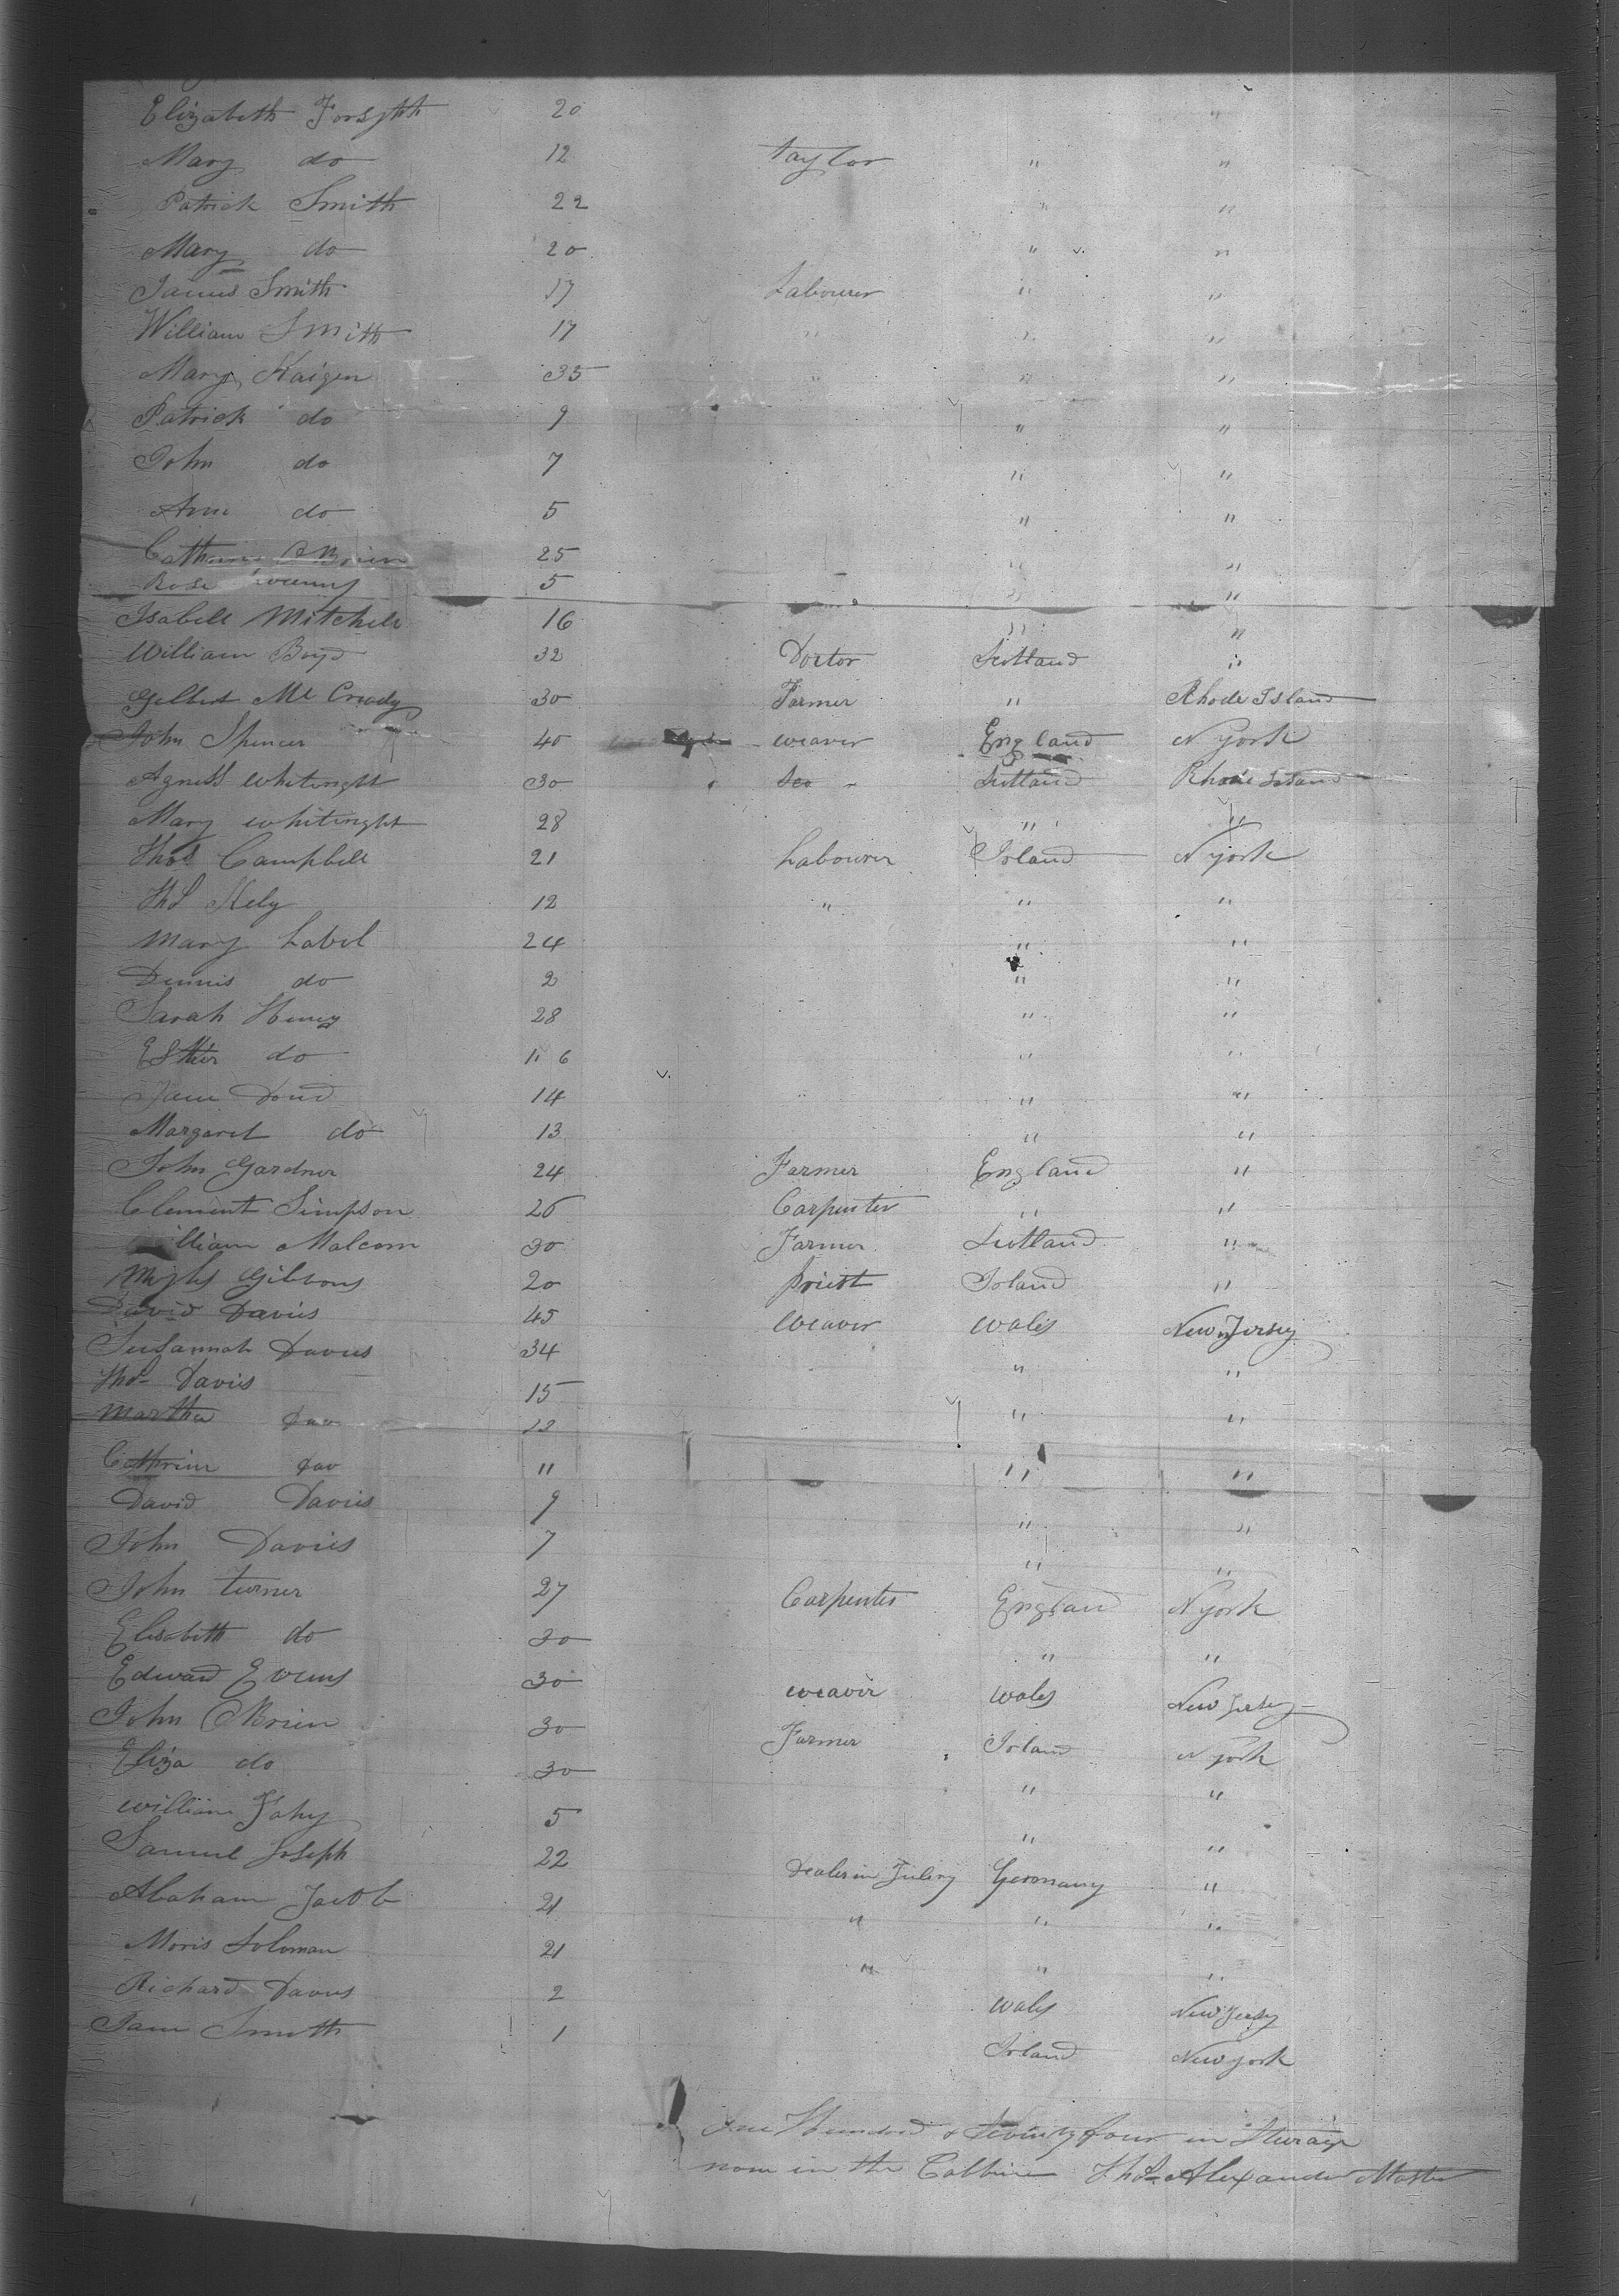 Elizabeth Forsyth 20 "
Mary do 12 Taylor " "
Patrick Smith 22 " "
Mary do 20 " "
James Smith 17 Labourer " "
William Smith 17 " " "
Mary Kaigen 35 " " "
Patrick do 9 " "
John do 7 " "
Ann do 5 " "
Catherine OBrien 25 " "
Rose 5 " "
Isabell Mitchell 16 " "
William Boyd 32 Doctor Scotland "
Gilbert Mc Cready 30 Farmer " Rhode Island
John Spencer 40 weaver England N York
Agness Whitwright 30 Scotland Rhode Island
Mary whitwright 28 " "
Thos Campbell 21 Labourer Irland N york
Thos Kely 12 " " "
Mary Label 24 " "
Dennis do 2 " "
Sarah Henry 28 " "
Esther do 6 " "
Jane Doud 14 " " "
Margaret do 13 " "
John Gardner 24 Farmer England "
Clement Simpson 26 Carpenter " "
William Malcom 30 Farmer Scotland "
Myles Gibbons 20 priest Irland "
David Davies 45 Weaver Wales New Jersey
Susannah Davies 34 " "
Thos Davies 15
Martha Dav 12 " "
Cathrine Dav 11 " "
David Davies 9 " "
John Davies 7 " "
John Turner 27 Carpenter England N york
Elisabeth do 30 " "
Edward Evens 30 weaver wales New Jersey
John OBrien 30 Farmer Irland N york
Eliza do 30 " "
William Fahy 5 " "
Samuel Joseph 22 Dealer in Julery Germany "
Abaham Jacob 21 " " "
Moris Soloman 21 " " "
Richard Davies 2 wales New Jersey
Jane Smith 1 Irland New york
One Hundred & Seventy four in Sturaige
none in the Cabbine Thos Alexander Master